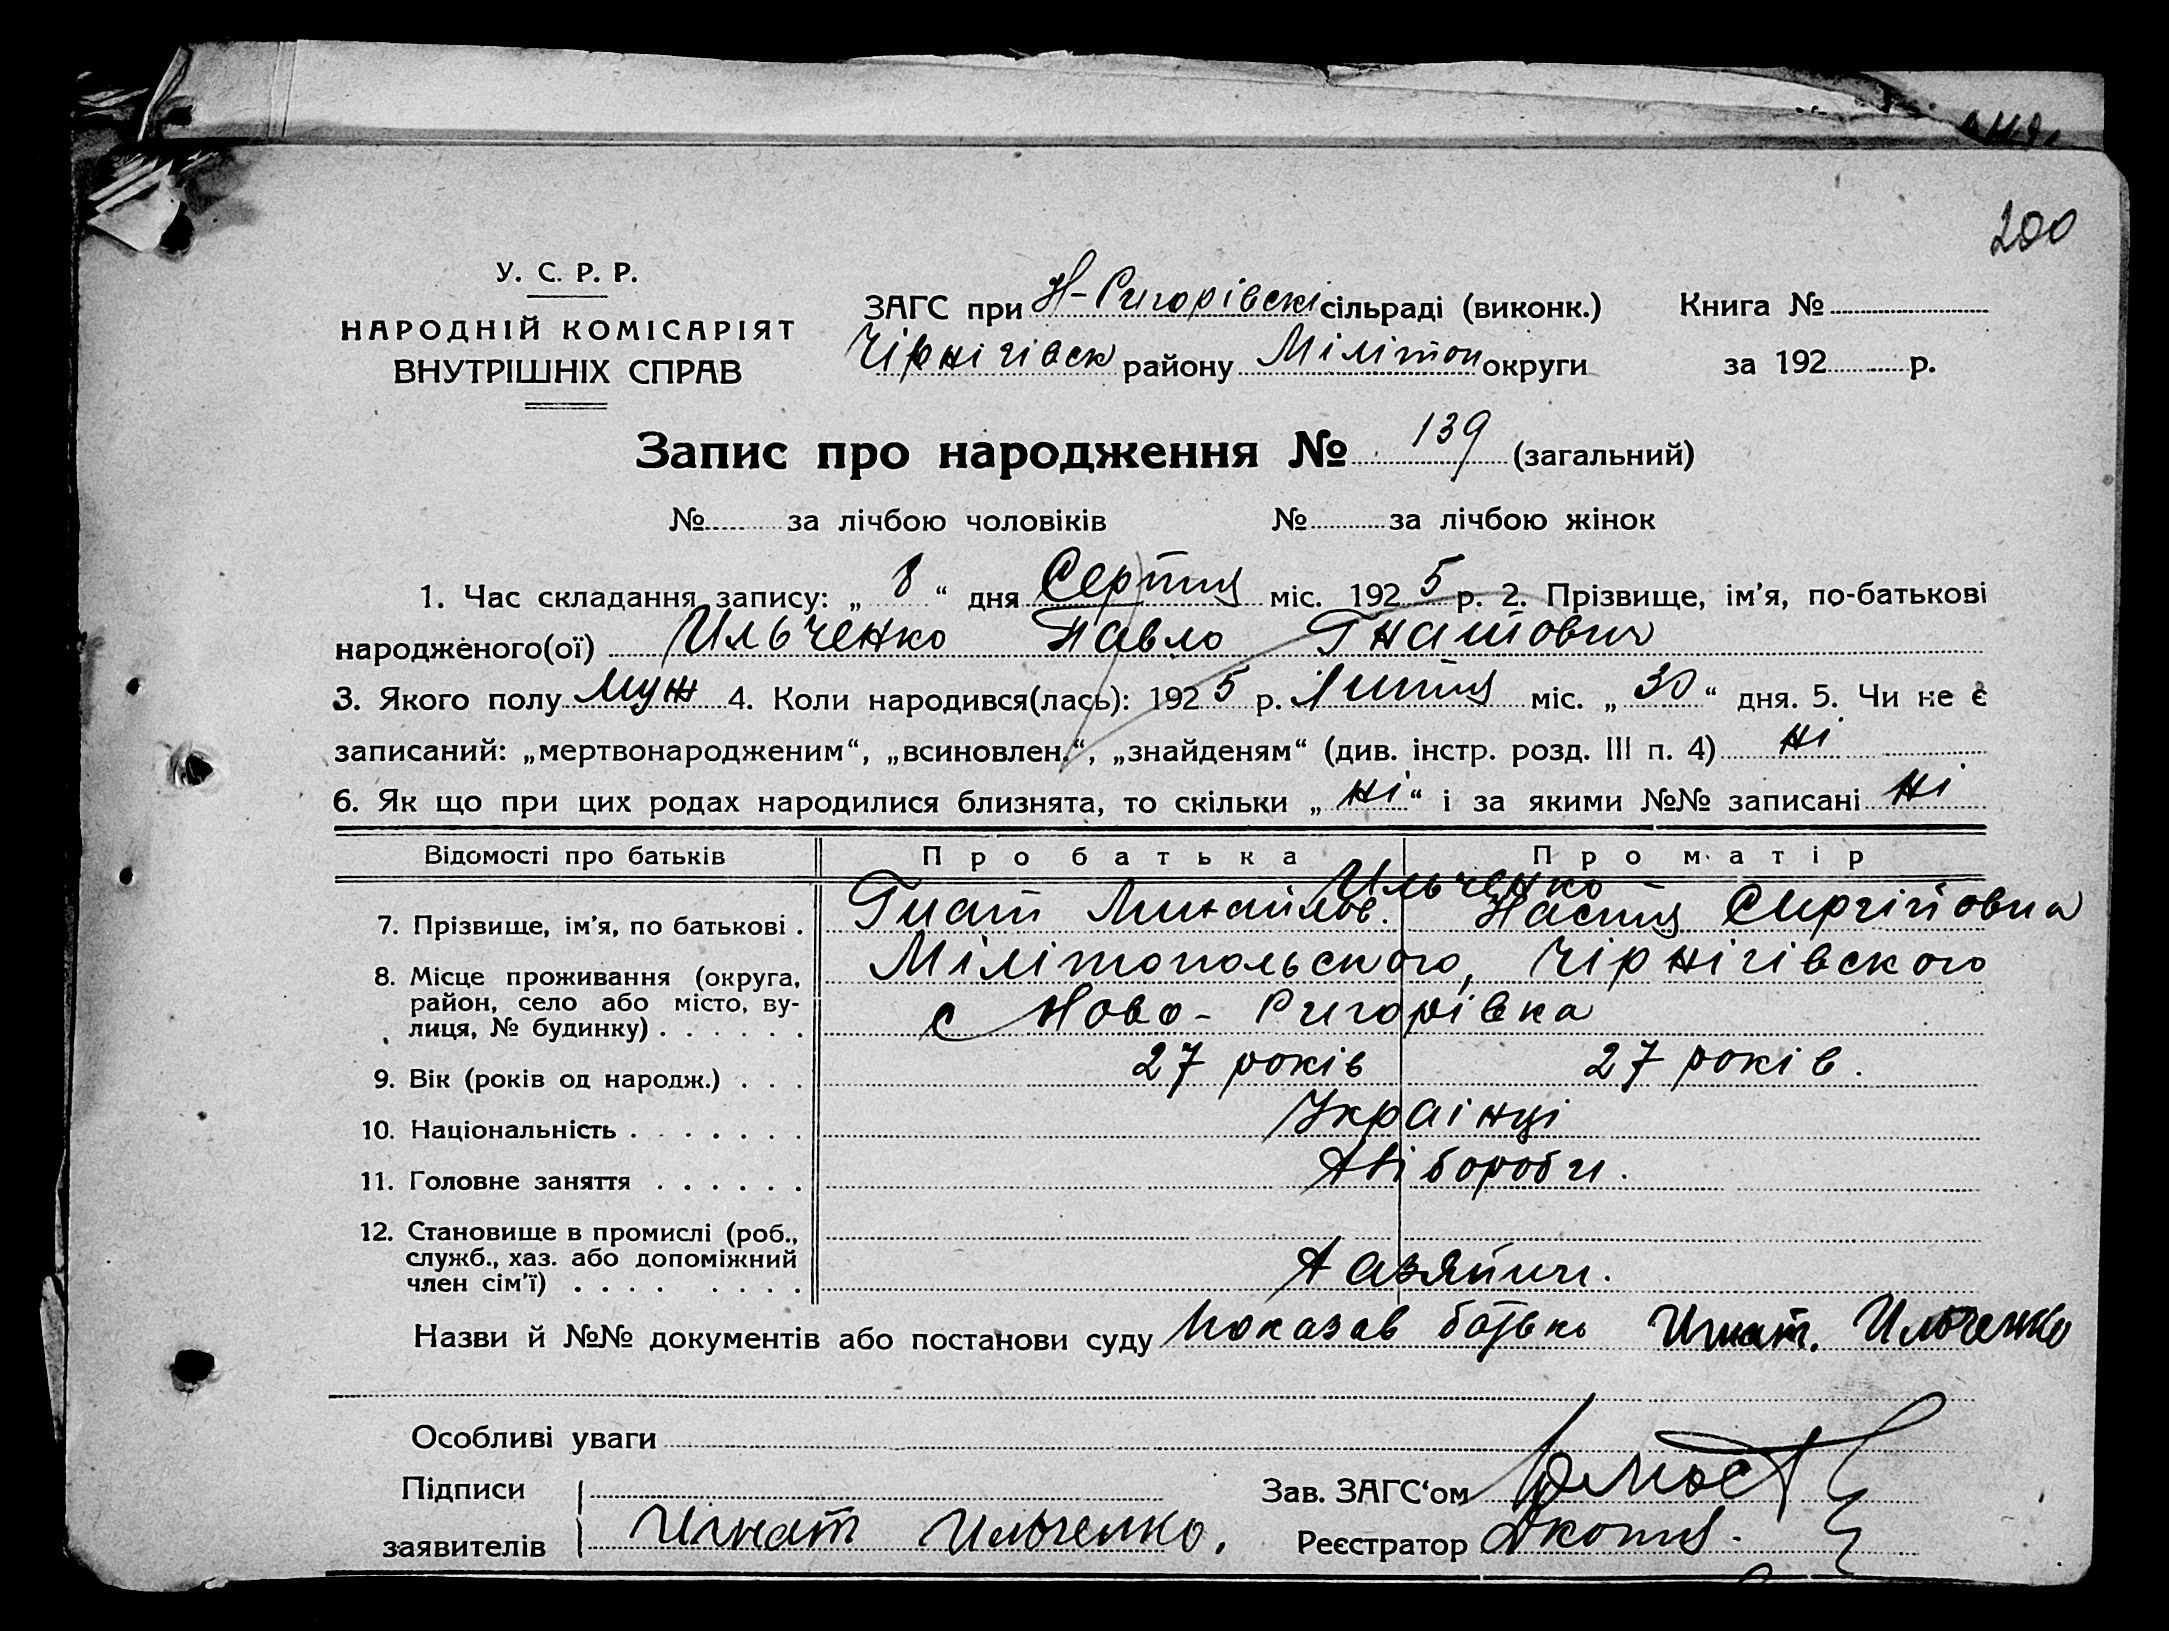 200
У. С. Р. Р.
НАРОДНІЙ КОМІСАРІЯТ
ВНУТРІШНІХ СПРАВ
ЗАГС при Н-Ригорівскі сільраді (виконк.) Книга №
Чірнігівск району Мілітоп округи за 192 р.
Запис про народження № 139 (загальний)
№ за лічбою чоловіків № за лічбою жінок
1. Час складання запису: „ 8 “ дня Серпня міс. 1925 р. 2. Прізвище, ім'я, по-батькові
народженого(ої) Ильченко Павло Гнатович
3. Якого полу Муж 4. Коли народився(лась): 1925 р. Липня міс. „ 30 “ дня. 5. Чи не є
записаний: „мертвонародженим“, „всиновлен.“, „знайденям“ (див. інстр. розд. III п. 4) ні
6. Як що при цих родах народилися близнята, то скільки „ ні “ і за якими №№ записані ні
Відомості про батьків Про батька Про матір
Ильченко
7. Прізвище, ім'я, по батькові . Гнат Михайлов. Настя Сиргійовна
8. Місце проживання (округа, Мілітопольского, Чірнігівского
район, село або місто, ву-
лиця, № будинку) . . . . . . с Ново-Ригорівка
9. Вік (років од народж.) . . . 27 років 27 років.
10. Національність . . . . . . . Украінці
11. Головне заняття . . . . . .
12. Становище в промислі (роб.,
служб., хаз. або допоміжний
член сім'ї) . . . . . . . .
Назви й №№ документів або постанови суду показав батько Игнат. Ильченко
Особливі уваги
Підписи Зав. ЗАГС‘ом
заявителів Игнат Ильченко. Реєстратор